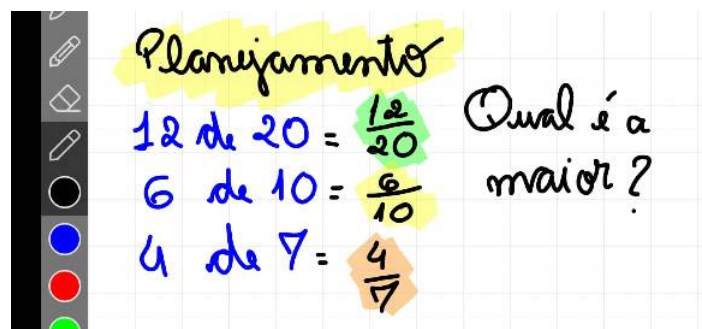 Planejamento
12 de 20 = 12/20
6 de 10 = 6/10
4 de 7 = 4/7
Qual é a
maior?